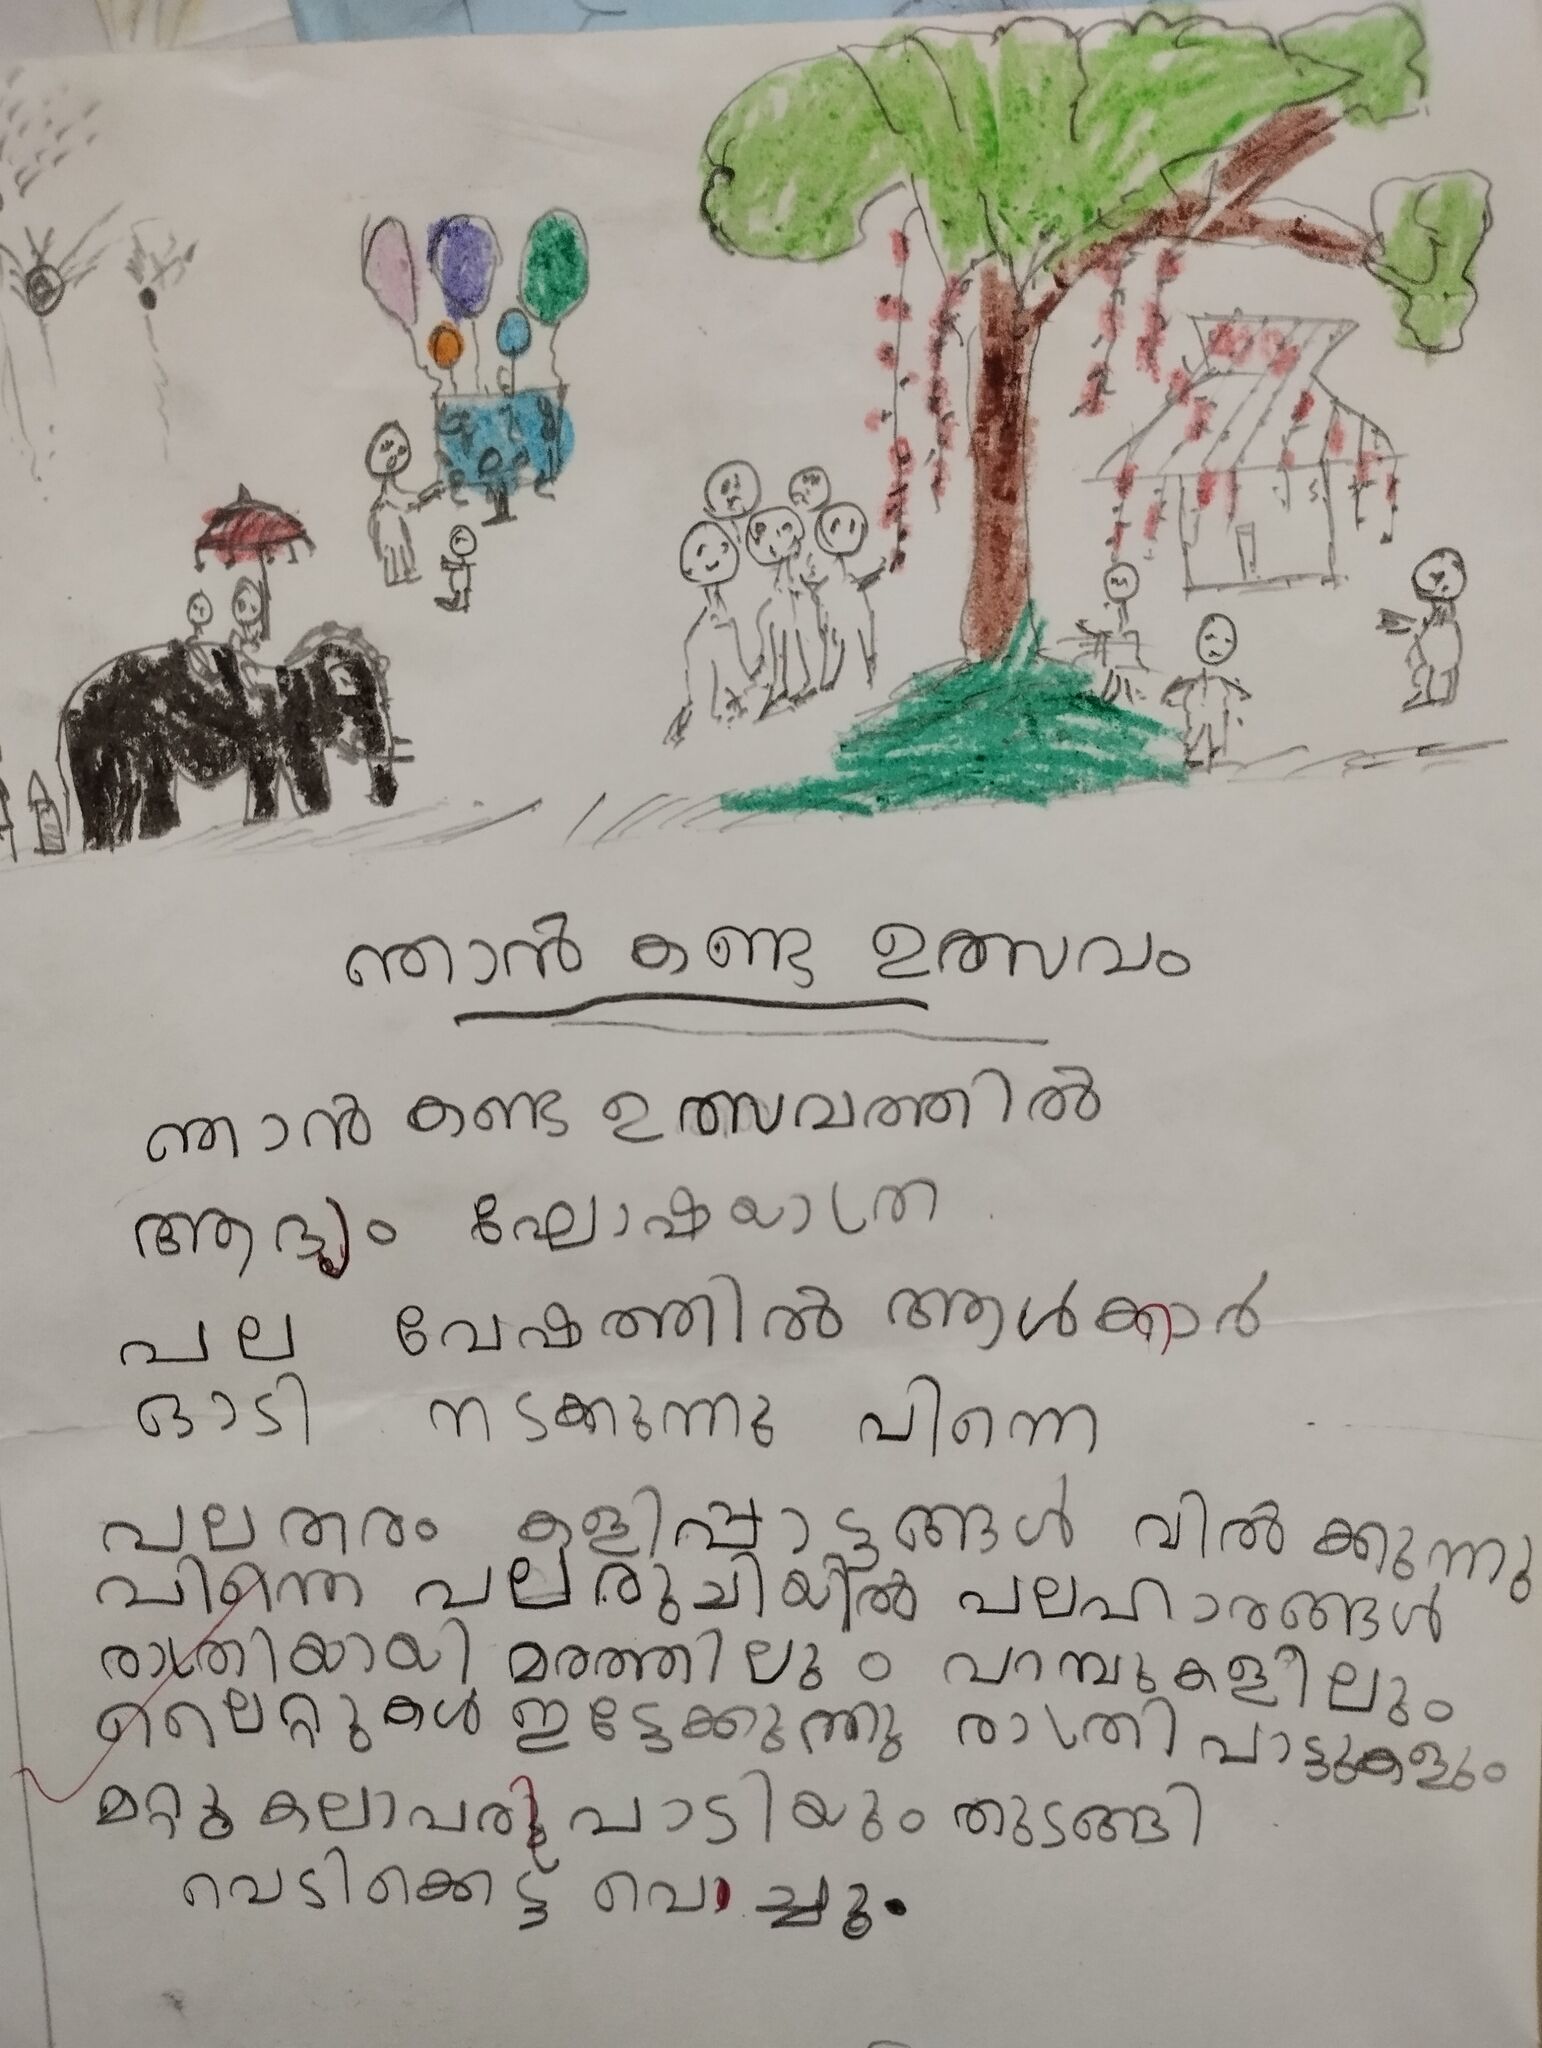 ഞാൻ കണ്ട ഉത്സവം
ഞാൻ കണ്ട ഉത്സവത്തിൽ
ആദ്യം ഘോഷയാത്ര
പല വേഷത്തിൽ ആൾക്കാർ
ഓടി നടക്കുന്നു പിന്നെ
പലതരം കളിപ്പാട്ടങ്ങൾ വിൽക്കുന്നു
പിന്നെ പലരുചിയിൽ പലഹാരങ്ങൾ
രാത്രിയായി മരത്തിലും പറമ്പുകളീലും
ലൈറ്റുകൾ ഇട്ടേക്കുന്നു രാത്രി പാട്ടുകളും
മറ്റു കലാപരിപാടിയും തുടങ്ങി
വെടിക്കെട്ട് പൊട്ടിച്ചു.